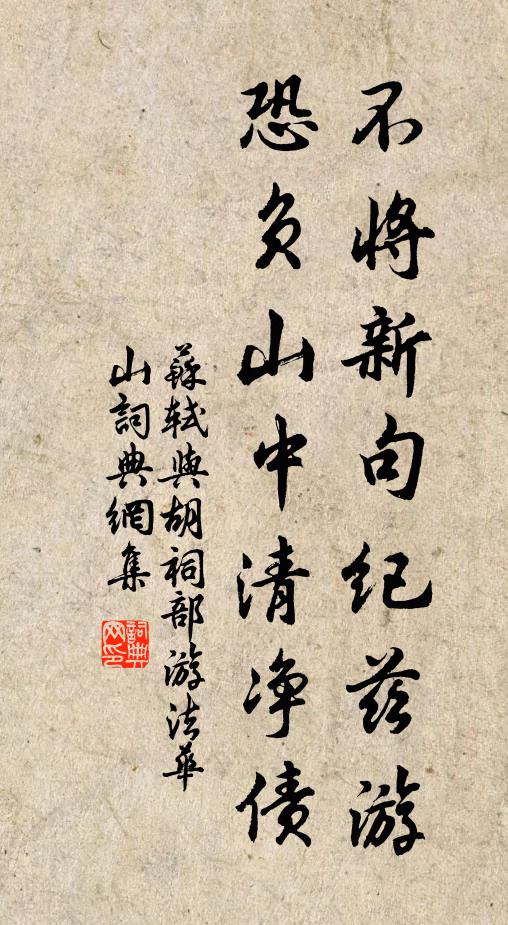 不将新句纪兹游
恐负山中清净债
蘇轼與胡祠部游法華
山詞典網集
詞典
网印